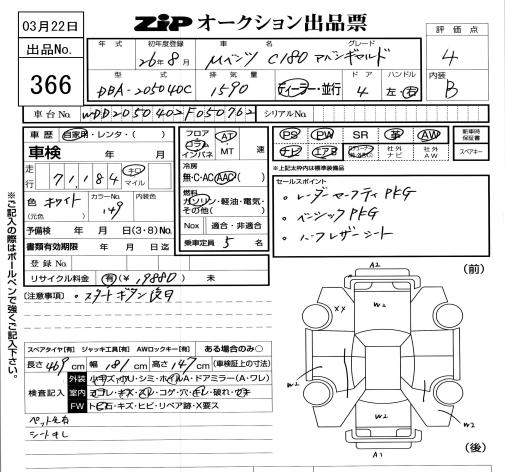 03月22日
ZIP オークション出品票
出品No.
366
年式 初年度登録 車名 グレード
26年8月 Mベンツ C180 アバンギャルド
型式 排気量 ドア ハンドル
DBA-205040C 1590 ディーラー・並行 4 左・右
評価点
4
内装
B
車台No. WDD2050402F050762 シリアルNo.
車歴 自家用・レンタ・( )
車検 年 月
走行 71,184 キロ マイル
色(元色) ホワイト カラーNo. 149 内装色
予備検 年 月 日(3・8)No.
書類有効期限 年 月 日迄
登録No.
リサイクル料金 有(¥ 9880) 未
フロア コラム インパネ AT MT 速
冷房
無・C・AC・AAC( )
燃料
ガソリン・軽油・電気・その他( )
Nox 適合・非適合
乗車定員 5 名
PS PW SR 革 AW
ナビ エアB 社外ナビ 社外AW
新車時保証書
スペアキー
*上記太枠内は標準装備品
セールスポイント
。レーダーセーフティPKG
。ベーシックPKG
。ハーフレザーシート
〔注意事項〕・スタートボタン後日
※ご記入の際はボールペンで強くご記入下さい。
スペアタイヤ【有】 ジャッキ工具【有】 AWロックキー【有】 ある場合のみ○
長さ 469 cm 幅 181 cm 高さ 147 cm (車検証上の寸法)
検査記入
外装 小キズ・カリ・シミ・ホイルA・ドアミラー(A・ワレ)
内装 ヨゴレ・キズ・スレ・コゲ・穴・破れ・ワキ
FW トビ石・キズ・ヒビ・リペア跡・X要ス
ペット毛有
シートすし
(前)
A2
W2
XX
W2
W2
W2
W2
A1
(後)